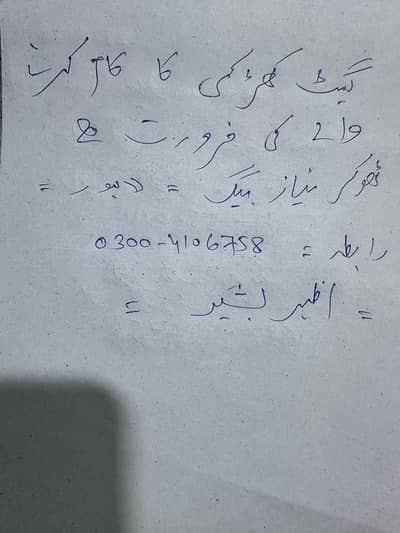 گیٹ کھڑکی کا کام کرنے
والے کی ضرورت ہے
ٹھوکر نیاز بیگ = لاہور =
رابطہ = 0300-4106758
= اظہر بشیر =